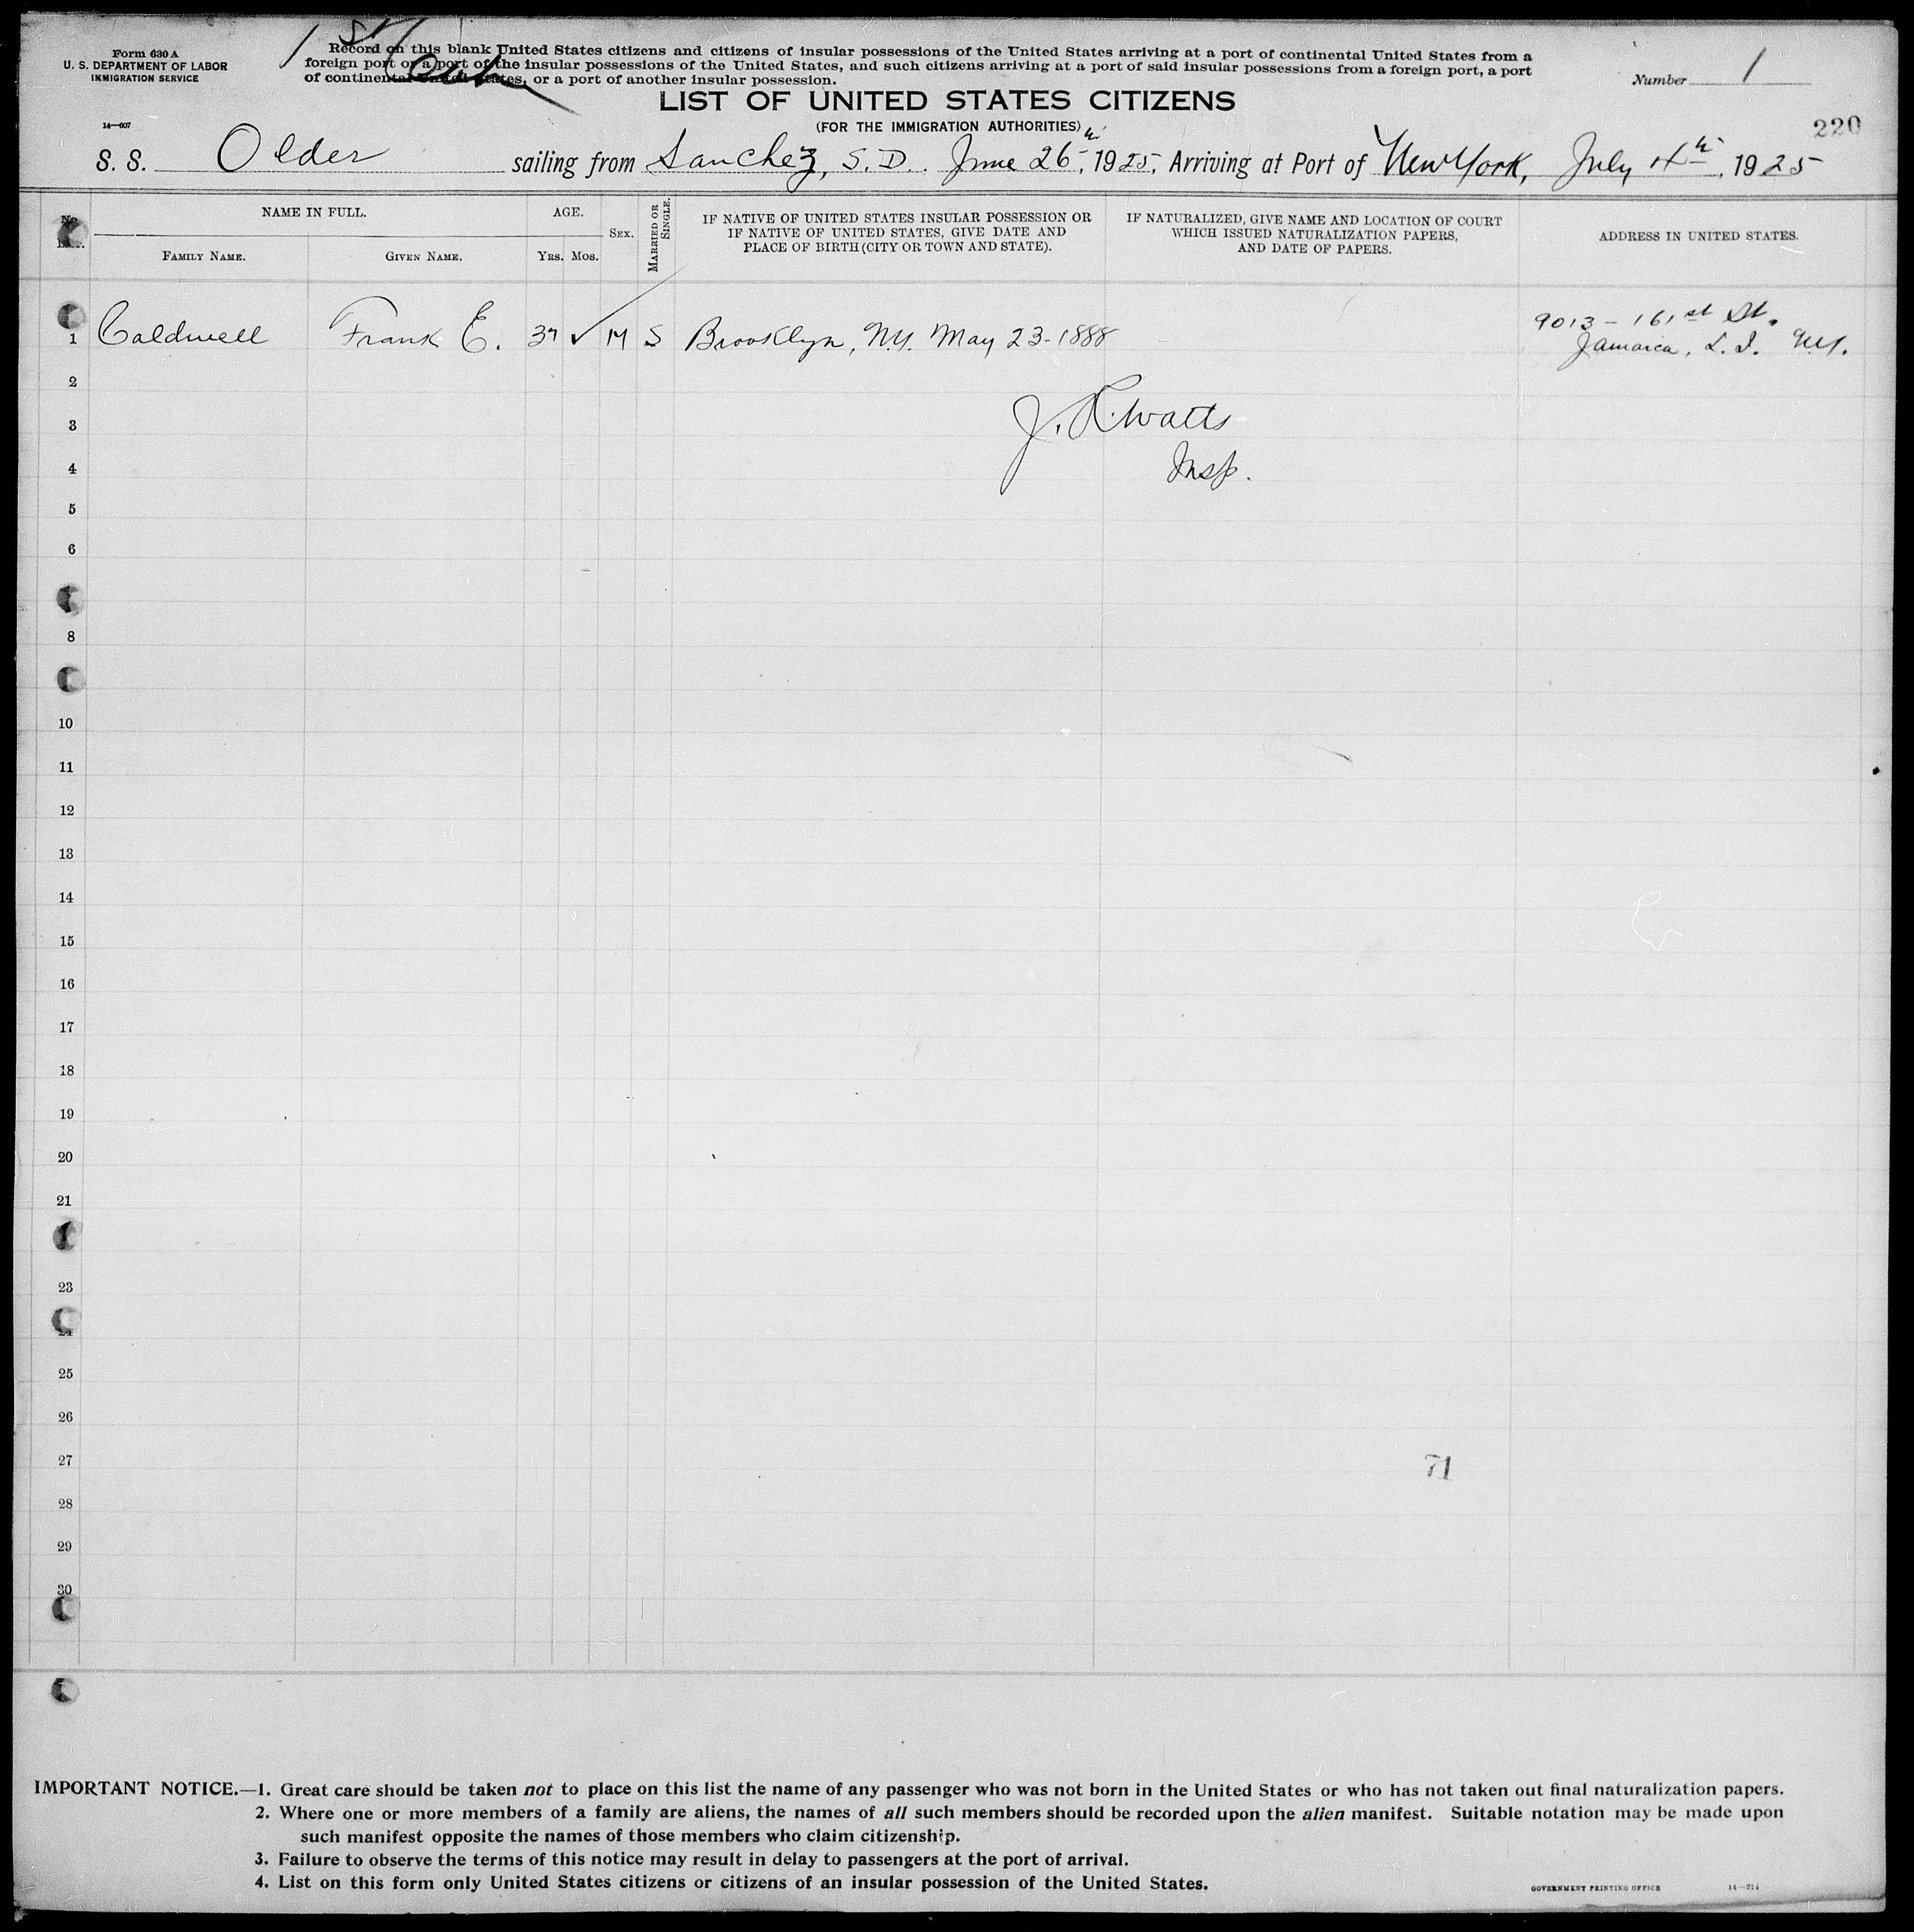 Form 630 A
U. S. DEPARTMENT OF LABOR
IMMIGRATION SERVICE
14—607
1st Cab
Record on this blank United States citizens and citizens of insular possessions of the United States arriving at a port of continental United States from a
foreign port or a port of the insular possessions of the United States, and such citizens arriving at a port of said insular possessions from a foreign port, a port
of continental United States, or a port of another insular possession.
Number 1
LIST OF UNITED STATES CITIZENS
(FOR THE IMMIGRATION AUTHORITIES)
220
S. S. Older sailing from Sanchez, S. D. June 26th, 1925, Arriving at Port of New York, July 4th, 1925
No. NAME IN FULL. AGE. SEX. MARRIED OR SINGLE. IF NATIVE OF UNITED STATES INSULAR POSSESSION OR
IF NATIVE OF UNITED STATES, GIVE DATE AND
PLACE OF BIRTH (CITY OR TOWN AND STATE).
IF NATURALIZED, GIVE NAME AND LOCATION OF COURT
WHICH ISSUED NATURALIZATION PAPERS,
AND DATE OF PAPERS.
ADDRESS IN UNITED STATES.
FAMILY NAME. GIVEN NAME. YRS. MOS.
1 Caldwell Frank E. 37 ✓ M S Brooklyn, N.Y. May 23-1888 9013 - 161st St.
Jamaica, L. I. N.Y.
2
3 J. R. Watts
4 Insp.
5
6
8
10
11
12
13
14
15
16
17
18
19
20
21
23
24
25
26
27 71
28
29
30
IMPORTANT NOTICE.—1. Great care should be taken not to place on this list the name of any passenger who was not born in the United States or who has not taken out final naturalization papers.
2. Where one or more members of a family are aliens, the names of all such members should be recorded upon the alien manifest. Suitable notation may be made upon
such manifest opposite the names of those members who claim citizenship.
3. Failure to observe the terms of this notice may result in delay to passengers at the port of arrival.
4. List on this form only United States citizens or citizens of an insular possession of the United States.
GOVERNMENT PRINTING OFFICE 14—214